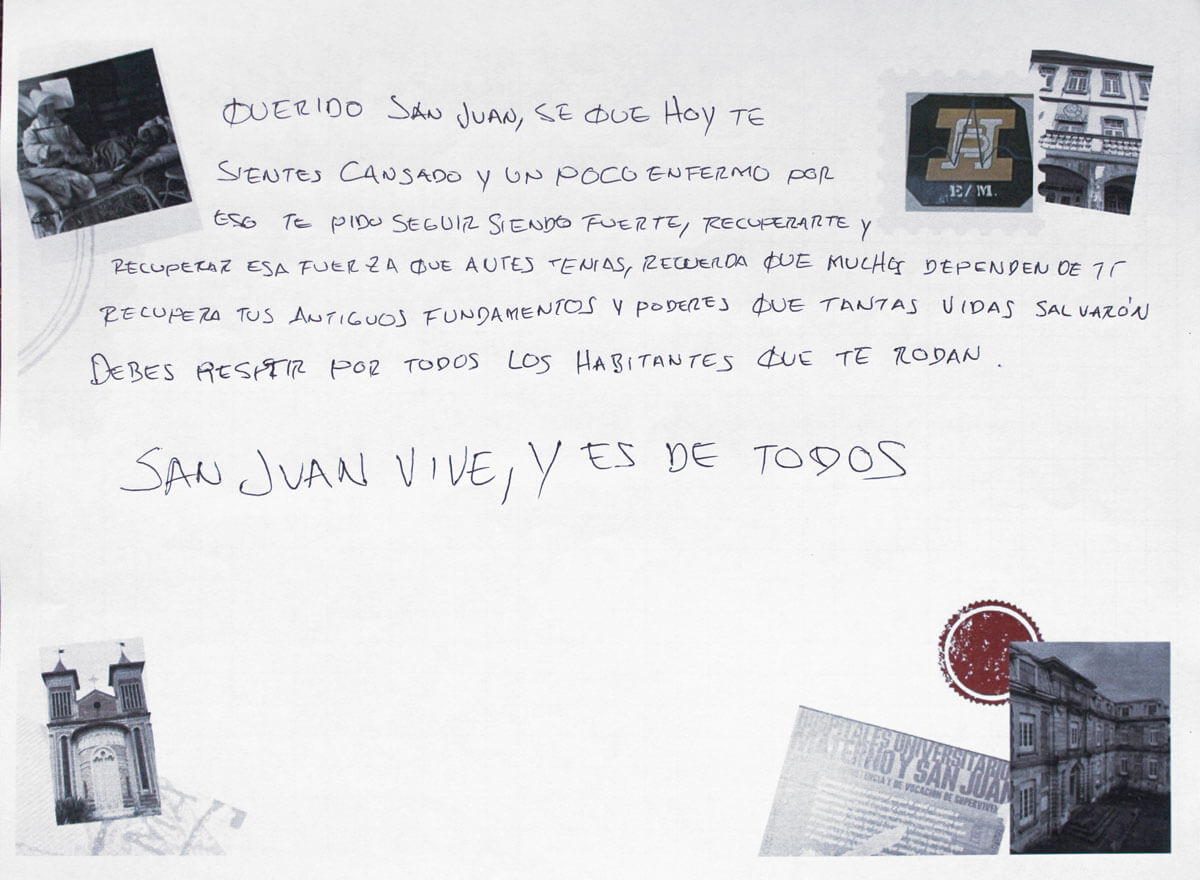 QUERIDO SAN JUAN, SE QUE HOY TE
SIENTES CANSADO Y UN POCO ENFERMO POR
ESO TE PIDO SEGUIR SIENDO FUERTE, RECUPERARTE Y
RECUPERAR ESA FUERZA QUE ANTES TENIAS, RECUERDA QUE MUCHOS DEPENDEN DE TI
RECUPERA TUS ANTIGUOS FUNDAMENTOS Y PODERES QUE TANTAS VIDAS SALVARÓN
DEBES RESISTIR POR TODOS LOS HABITANTES QUE TE RODAN.
SAN JUAN VIVE, Y ES DE TODOS
E/M.
PITALES UNIVERSITARIO
MATERNO Y SAN JUAN
ENCIA Y DE VOCACIÓN DE SUPERVIVE